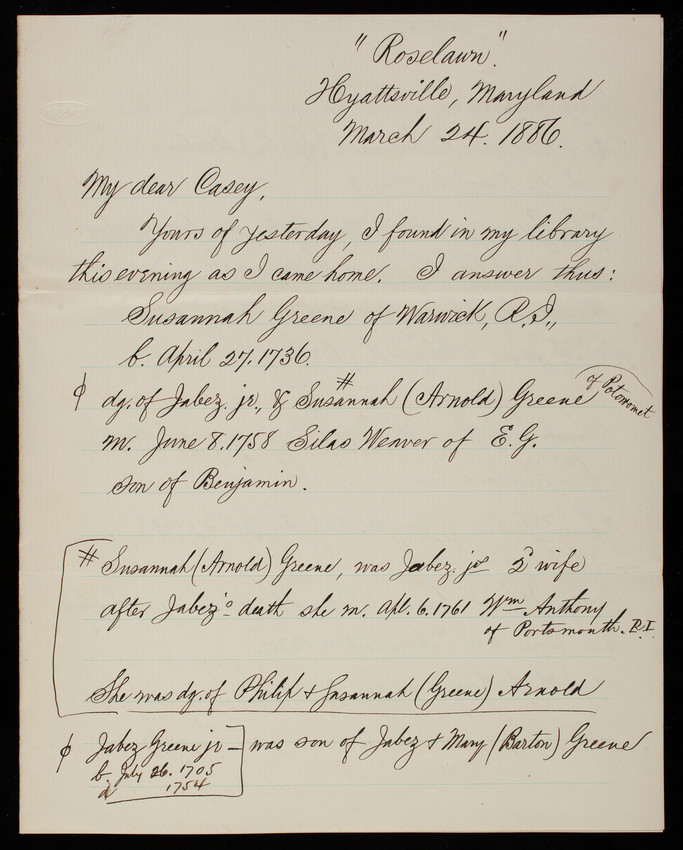 "Roselawn".
Hyattsville, Maryland
March 24. 1886.
My dear Casey,
Yours of yesterday, I found in my library
this evening as I came home. I answer thus:
Susannah Greene of Warwick, R.I.,
b. April 27. 1736.
ϕ dg. of Jabez. jr., & Susannah # (Arnold) Greene of Potowomet
m. June 8. 1758 Silas Weaver of E.G.
son of Benjamin.
# Susannah (Arnold) Greene, was Jabez. jrs 2d wife
after Jabez's death she m. Apl. 6. 1761 Wm Anthony
of Portsmouth. R.I.
She was dg. of Philip & Susannah (Greene) Arnold
ϕ Jabez Greene jr – was son of Jabez & Mary (Barton) Greene
b. July 26. 1705
d 1754